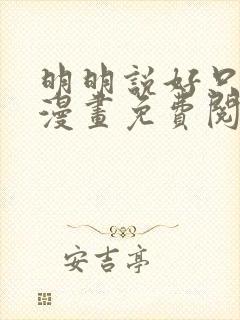 明明說好只
漫畫免費閱
安吉亭